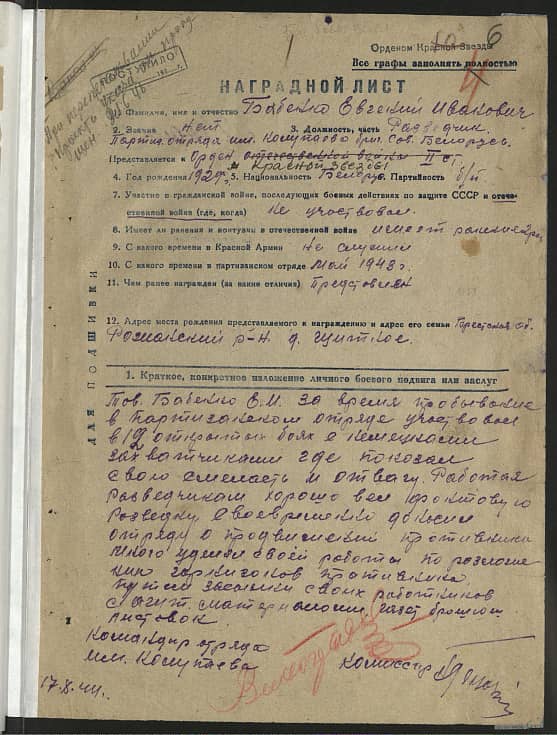 6
Орденом Красной Звезды
Все графы заполнять полностью
4
ПОСТУПИЛО
НАГРАДНОЙ ЛИСТ
1. Фамилия, имя и отчество Бабенко Евгений Иванович
2. Звание нет 3. Должность, часть Разведчик
Партиз. отряда им. бри. Сов. Белорусь
Представляется к Орден отечественной войны II ст.
Красной звезды
4. Год рождения 5. Национальность Белорус. Партийность б/п
7. Участие в гражданской войне, последующих боевых действиях по защите СССР и отече-
ственной войне (где, когда) не участвовал
8. Имеет ли ранения и контузии в отечественной войне имеет ранение
9. С какого времени в Красной Армии не служил
10. С какого времени в партизанском отряде май 1943 г.
11. Чем ранее награжден (за какие отличия) Представлен
12. Адрес места рождения представляемого к награждению и адрес его семьи Брестская об.
р-н д.
ДЛЯ ПОДШИВКИ
1. Краткое, конкретное изложение личного боевого подвига или заслуг
Тов. Бабенко Е.И. за время пребывание
в партизанском отряде участвовал
в открытых боях с немецкими
захватчиками где показал
свою смелость и отвагу. Работая
разведчикам хорошо вел
Разведку, своевременно
отряду о противника
много уделял своей работы по
гарнизонов противника
путем засылки своих работников
с агит. материалами газет брошюр
листовок.
Командир отряда
им.
комиссар
17.8.44.